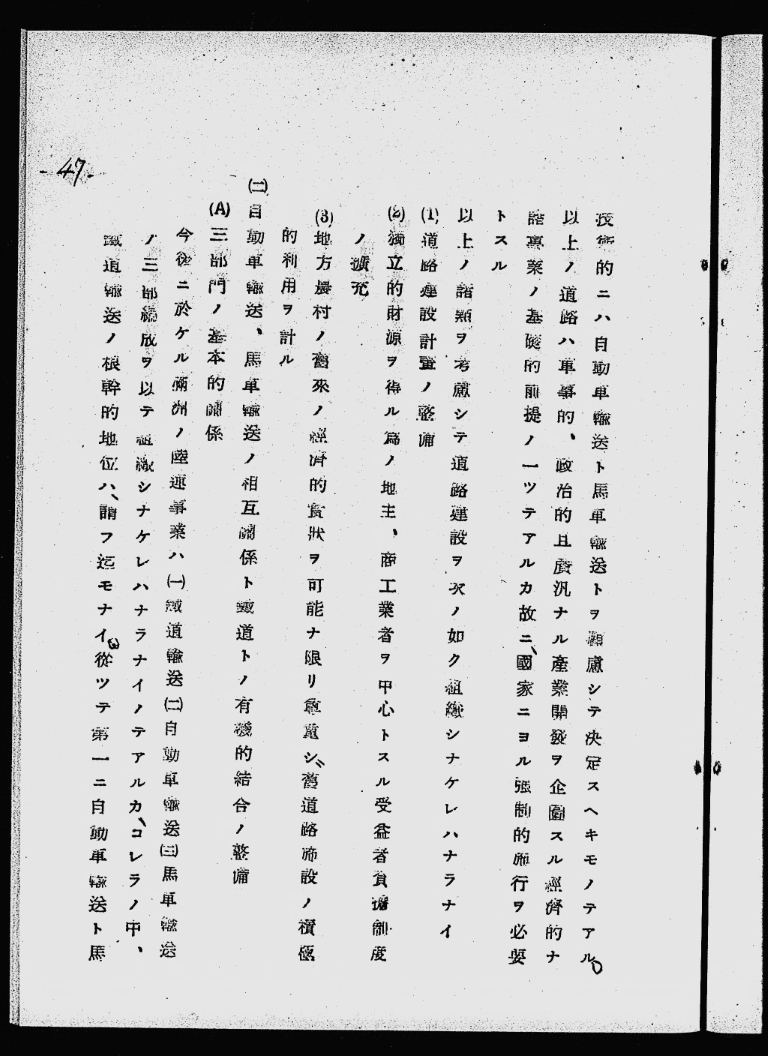 47.
技術的ニハ自動車輸送ト馬車輸送トヲ顧慮シテ決定スヘキモノテアル。
以上ノ道路ハ軍事的、政治的且廣汎ナル產業開發ヲ企圖スル經濟的ナ
諸事業ノ基礎的前提ノ一ツテアルカ故ニ、國家ニヨル强制的施行ヲ必要
トスル
以上ノ諸點ヲ考慮シテ道路建設ヲ次ノ如ク組織シナケレハナラナイ
(1)道路建設計畫ノ整備
(2)獨立的財源ヲ得ル爲ノ地主、商工業者ヲ中心トスル受益者負擔制度
ノ擴充
(3)地方農村ノ舊來ノ經濟的實狀ヲ可能ナ限リ尊重シ、舊道路施設ノ積極
的利用ヲ計ル
(二)自動車輸送、馬車輸送ノ相互關係ト鐵道トノ有機的結合ノ整備
(A)三部門ノ基本的關係
今後ニ於ケル滿洲ノ陸運事業ハ(一)鐵道輸送(二)自動車輸送(三)馬車輸送
ノ三部編成ヲ以テ組織シナケレハナラナイノテアルカ、コレラノ中、
鐵道輸送ノ根幹的地位ハ、謂フ迄モナイ。從ツテ第一ニ自動車輸送ト馬